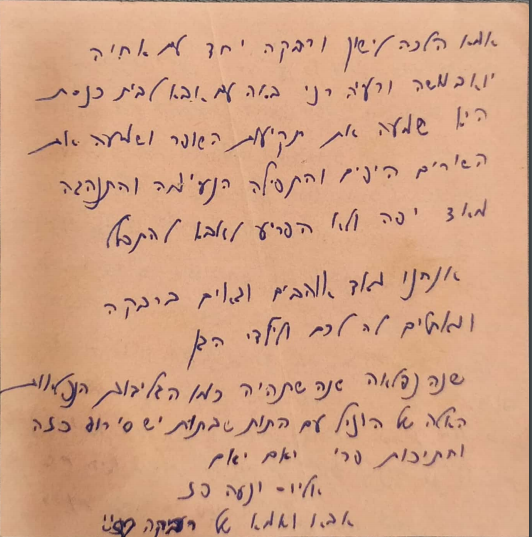 אמא הלכה לישון ורבקה יחד עם אחיה
יואב משה ורעיה רני באה עם אבא לבית כנסת
היא שמעה את תקיעות השופר ושמעה את
השירים היפים והתפילה הנעימה והתנהגה
מאוד יפה ולא הפריע לאבא להתפלל
אנחנו מאוד אוהבים וגאים ברבקה
ומאחלים לה לכם ולילדי הגן
שנה נפלאה שנה שתהיה כמו הגליבות
האלה של הוניל עם התות שבתות יש סירופ כזה
וחתיכות פרי יאם יאם
אבא ואמא של רבקה